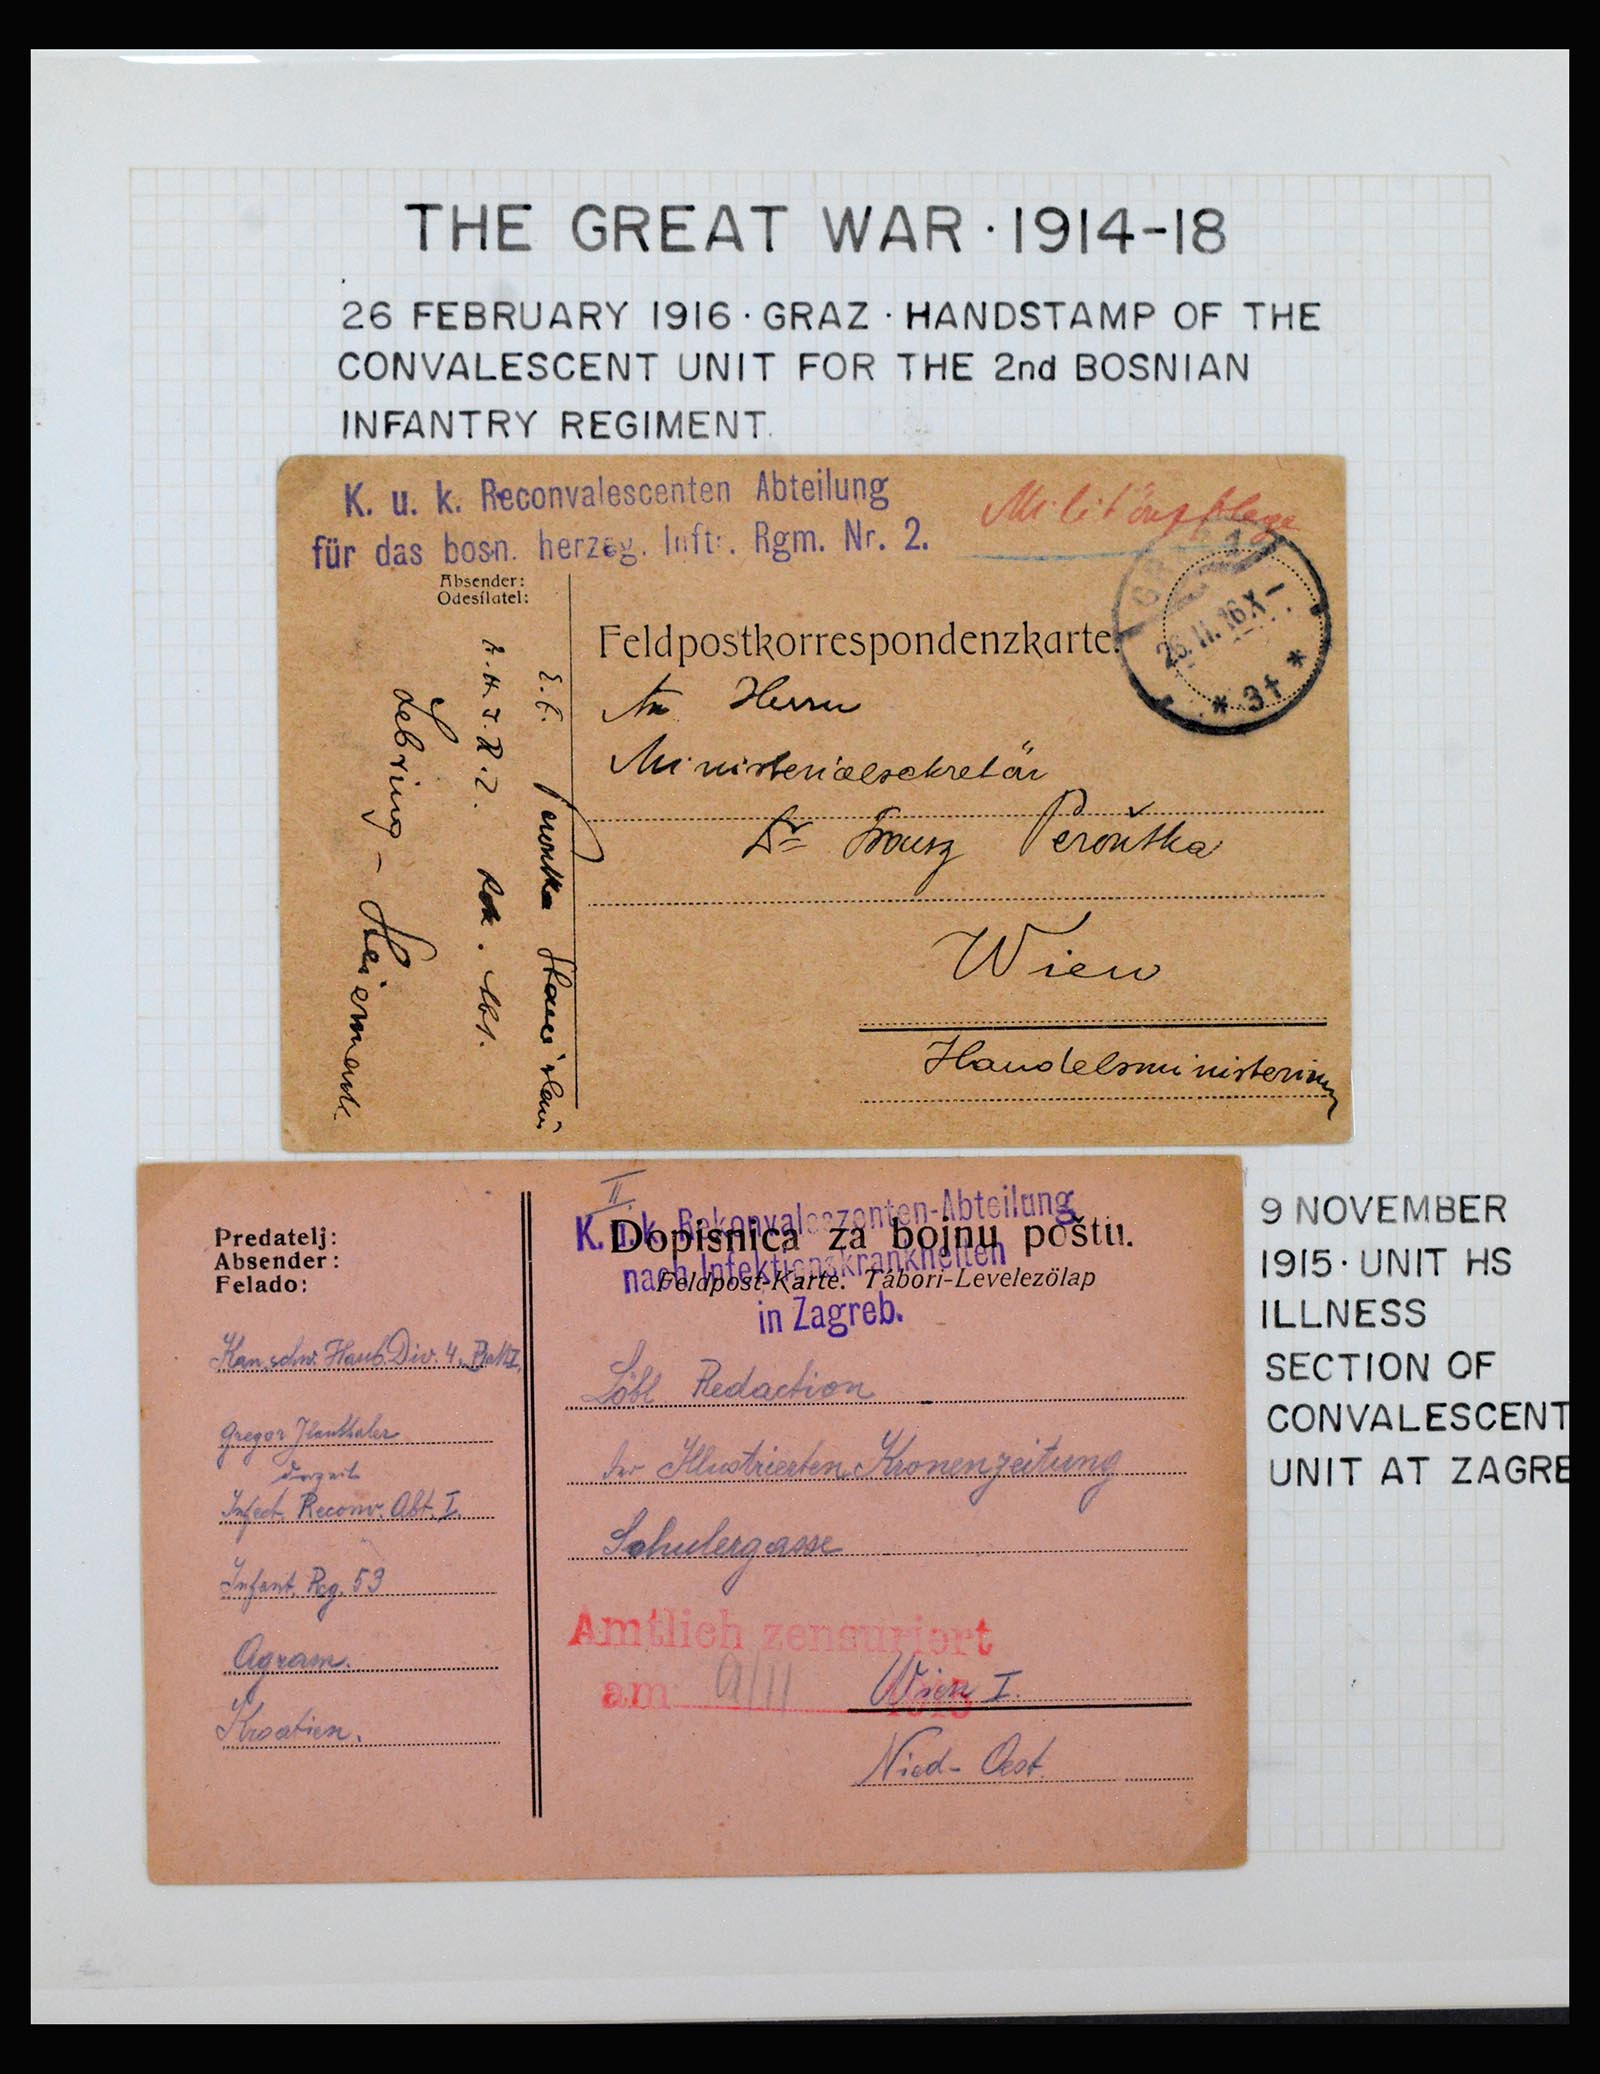 THE GREAT WAR · 1914-18
26 FEBRUARY 1916 · GRAZ · HANDSTAMP OF THE
CONVALESCENT UNIT FOR THE 2nd BOSNIAN
INFANTRY REGIMENT.
K. u. k. Reconvalescenten Abteilung
für das bosn. herzeg. Inftr. Rgm. Nr. 2.
Militärpflege
Absender:
Odesílatel:
Perouťka
Rek. Abt.
Lebring -
Feldpostkorrespondenzkarte.
26.II.16 X-
* 3f *
An Herrn
Ministerialsekretär
Dr Franz Perouťka
Wien
Handelsministerium
9 NOVEMBER
1915 · UNIT HS
ILLNESS
SECTION OF
CONVALESCENT
UNIT AT ZAGRE
II.
K. u. k. Rekonvaleszenten-Abteilung
nach Infektionskrankheiten
in Zagreb.
Dopisnica za bojnu poštu.
Feldpost-Karte. Tábori-Levelezölap
Predatelj:
Absender:
Felado:
Kan. schw. Haub. Div. 4.
Gregor
derzeit
Infect. Reconv. Abt. I.
Infant. Reg. 53
Agram.
Kroatien.
Löbl Redaction
der Illustrierten Kronenzeitung
Schulergasse
Amtlich zensuriert
am 9/11 1915
Wien I.
Nied-Oest.